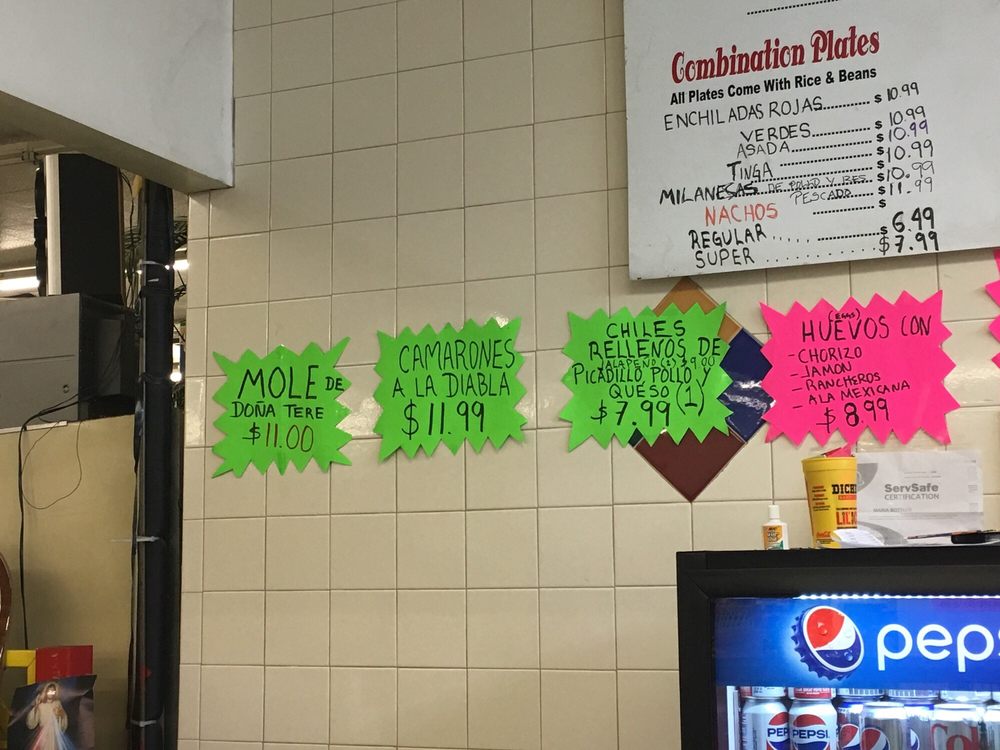 Combination Plates
All Plates Come With Rice & Beans
ENCHILADAS ROJAS............ $ 10.99
VERDES............... $ 10.99
ASADA.................. $ 10.99
TINGA .................. $ 10.99
MILANESAS DE POLLO Y RES $ 10.99
PESCADO $ 11.99
NACHOS ............ $
REGULAR ............ $ 6.49
SUPER ............ $7.99
MOLE DE
DOÑA TERE
$11.00
CAMARONES
A LA DIABLA
$11.99
CHILES
RELLENOS DE
JALAPEÑO (2) $9.00
PICADILLO POLLO Y
QUESO
$7.99 (1)
(EGGS)
HUEVOS CON
- CHORIZO
- JAMON
- RANCHEROS
- A LA MEXICANA
$8.99
ServSafe
CERTIFICATION
LIL
peps
PEPSI